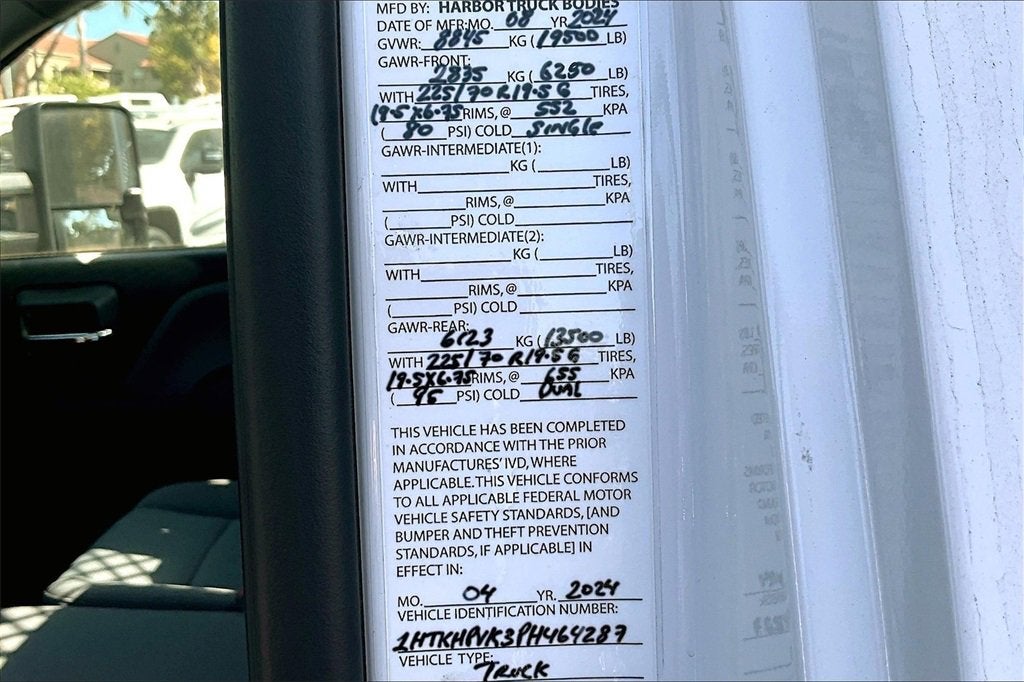 MFD BY: HARBOR TRUCK BODIES
DATE OF MFR:MO. 08 YR 2024
GVWR: 8845 KG (19500 LB)
GAWR-FRONT:
2835 KG (6250 LB)
WITH 225/70 R19.5 G TIRES,
19.5X6.75 RIMS, @ 552 KPA
(80 PSI) COLD SINGLE
GAWR-INTERMEDIATE(1):
KG ( LB)
WITH TIRES,
RIMS, @ KPA
( PSI) COLD
GAWR-INTERMEDIATE(2):
KG ( LB)
WITH TIRES,
RIMS, @ KPA
( PSI) COLD
GAWR-REAR:
6123 KG (13500 LB)
WITH 225/70 R19.5 G TIRES,
19.5X6.75 RIMS, @ 655 KPA
(95 PSI) COLD DUAL
THIS VEHICLE HAS BEEN COMPLETED
IN ACCORDANCE WITH THE PRIOR
MANUFACTURES' IVD, WHERE
APPLICABLE. THIS VEHICLE CONFORMS
TO ALL APPLICABLE FEDERAL MOTOR
VEHICLE SAFETY STANDARDS, [AND
BUMPER AND THEFT PREVENTION
STANDARDS, IF APPLICABLE] IN
EFFECT IN:
MO. 04 YR. 2024
VEHICLE IDENTIFICATION NUMBER:
1HTKHPVK3PH464287
VEHICLE TYPE:
TRUCK